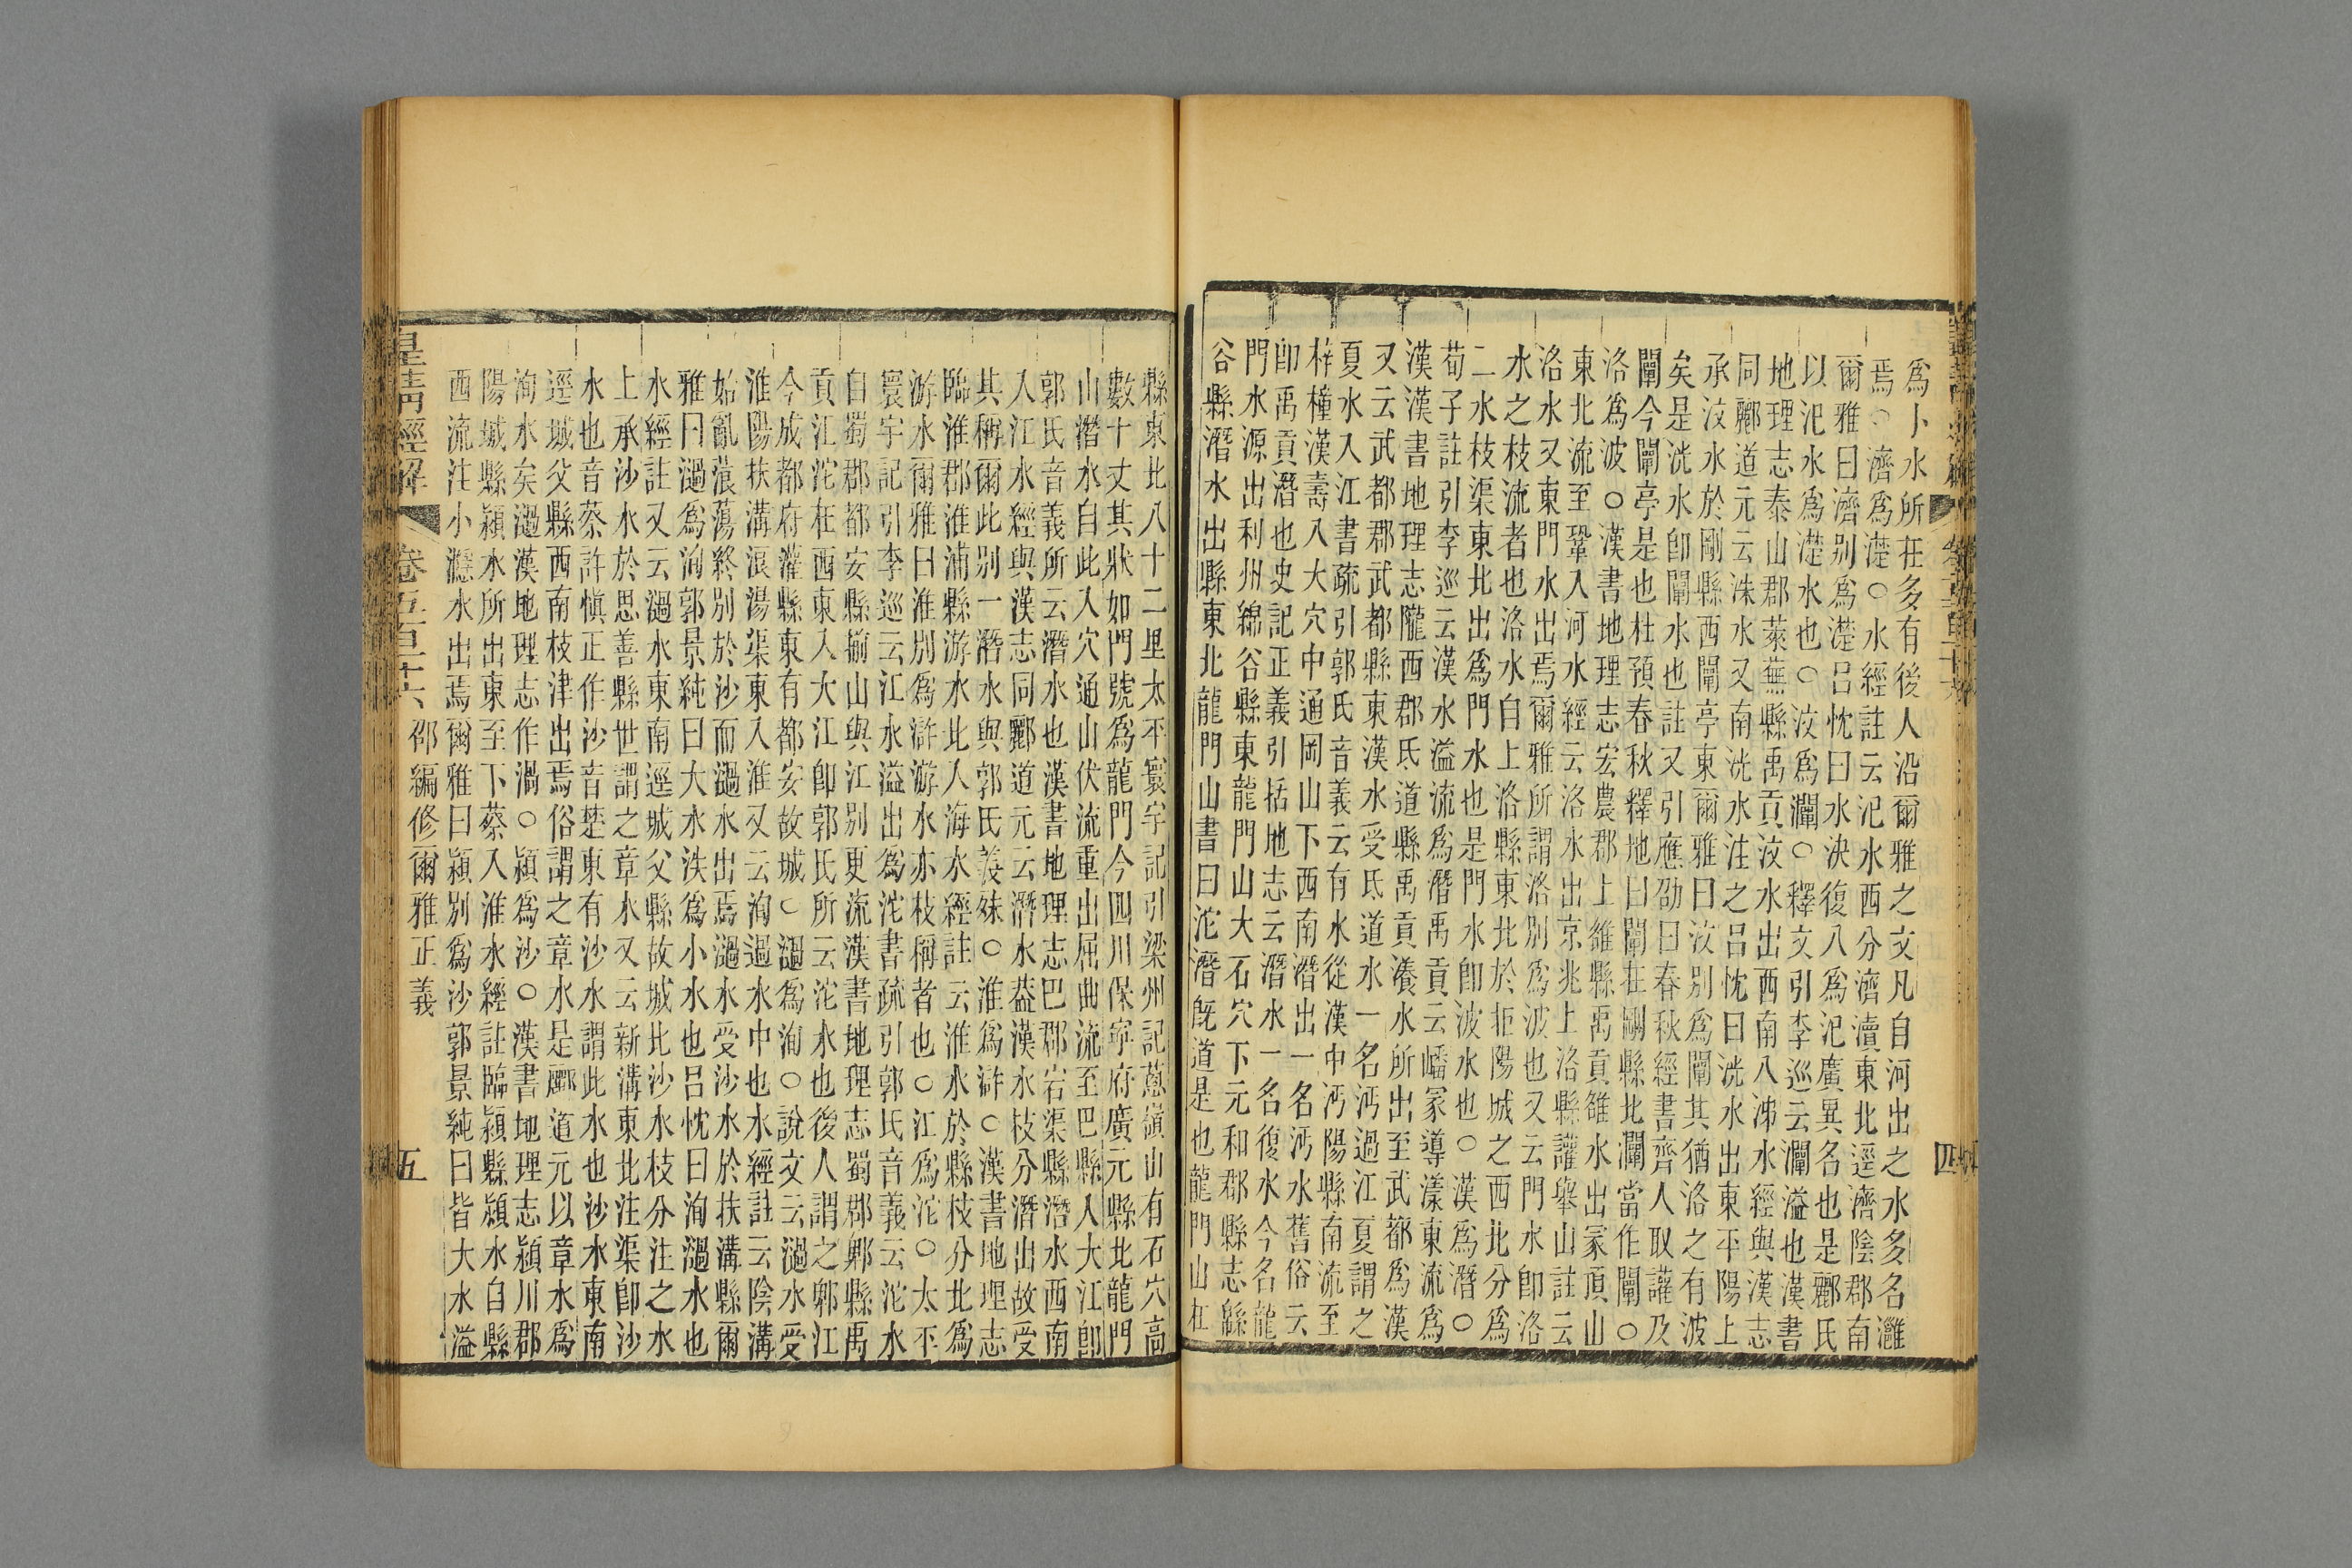 爲卜水所在多有後人沿爾雅之文凡自河出之水多名灉
焉○濟爲濋○水經註云汜水西分濟瀆東北逕濟陰郡南
爾雅曰濟别爲濋呂忱曰水決復入爲汜廣異名也是酈氏
以汜水爲濋水也○汶爲灛○釋文引李巡云灛溢也漢書
地理志泰山郡萊蕪縣禹貢汶水出西南入泲水經與漢志
同酈道元云洙水又南洸水注之呂忱曰洸水出東平陽上
承汶水於剛縣西闡亭東爾雅曰汶别爲闡其猶洛之有波
矣是洸水卽闡水也註又引應劭曰春秋經書齊人取讙及
闡今闡亭是也杜預春秋釋地曰闡在剛縣北灛當作闡○
洛爲波○漢書地理志宏農郡上雒縣禹貢雒水出冢頂山
東北流至鞏入河水經云洛水出京兆上洛縣讙舉山註云
洛水又東門水出焉爾雅所謂洛別爲波也又云門水卽洛
水之枝流者也洛水自上洛縣東北於拒陽城之西北分爲
二水枝渠東北出爲門水也是門水卽波水也○漢爲潛○
荀子註引李巡云漢水溢流爲潛禹貢云嶓冢導漾東流爲
漢漢書地理志隴西郡氐道縣禹貢瀁水所出至武都爲漢
又云武都郡武都縣東漢水受氐道水一名沔過江夏謂之
夏水入江書疏引郭氏音義云有水從漢中沔陽縣南流至
梓橦漢壽入大穴中通岡山下西南潛出一名沔水舊俗云
卽禹貢潛也史記正義引括地志云潛水一名復水今名龍
門水源出利州綿谷縣東龍門山大石穴下元和郡縣志緜
谷縣潛水出縣東北龍門山書曰沱潛既道是也龍門山在
縣東北八十二里太平寰宇記引梁州記蔥嶺山有石穴高
數十丈其狀如門號爲龍門今四川保寧府廣元縣北龍門
山潛水自此入穴通山伏流重出屈曲流至巴縣入大江卽
郭氏音義所云潛水也漢書地理志巴郡宕渠縣潛水西南
入江水經與漢志同酈道元云潛水葢漢水枝分潛出故受
其稱爾此别一潛水與郭氏義殊○淮爲滸○漢書地理志
臨淮郡淮浦縣游水北入海水經註云淮水於縣枝分北爲
游水爾雅曰淮別爲滸游水亦枝稱者也○江爲沱○太平
寰宇記引李巡云江水溢出爲沱書疏引郭氏音義云沱水
自蜀郡都安縣揃山與江别更流漢書地理志蜀郡郫縣禹
貢江沱在西東入大江卽郭氏所云沱水也後人謂之郫江
今成都府灌縣東有都安故城○濄爲洵○說文云濄水受
淮陽扶溝浪湯渠東入淮又云洵過水中也水經註云陰溝
始亂蒗蕩終别於沙而濄水出焉濄水受沙水於扶溝縣爾
雅曰濄爲洵郭景純曰大水泆爲小水也呂忱曰洵濄水也
水經註又云濄水東南逕城父縣故城北沙水枝分注之水
上承沙水於思善縣世謂之章水又云新溝東北注渠卽沙
水也音蔡許愼正作沙音楚東有沙水謂此水也沙水東南
逕城父縣西南枝津出焉俗謂之章水是酈道元以章水爲
洵水矣濄漢地理志作渦○潁爲沙○漢書地理志潁川郡
陽城縣潁水所出東至下蔡入淮水經註臨潁縣潁水自縣
西流注小㶏水出焉爾雅曰潁别爲沙郭景純曰皆大水溢
皇淸經解 卷五百十六 邵編修爾雅正義 五
四